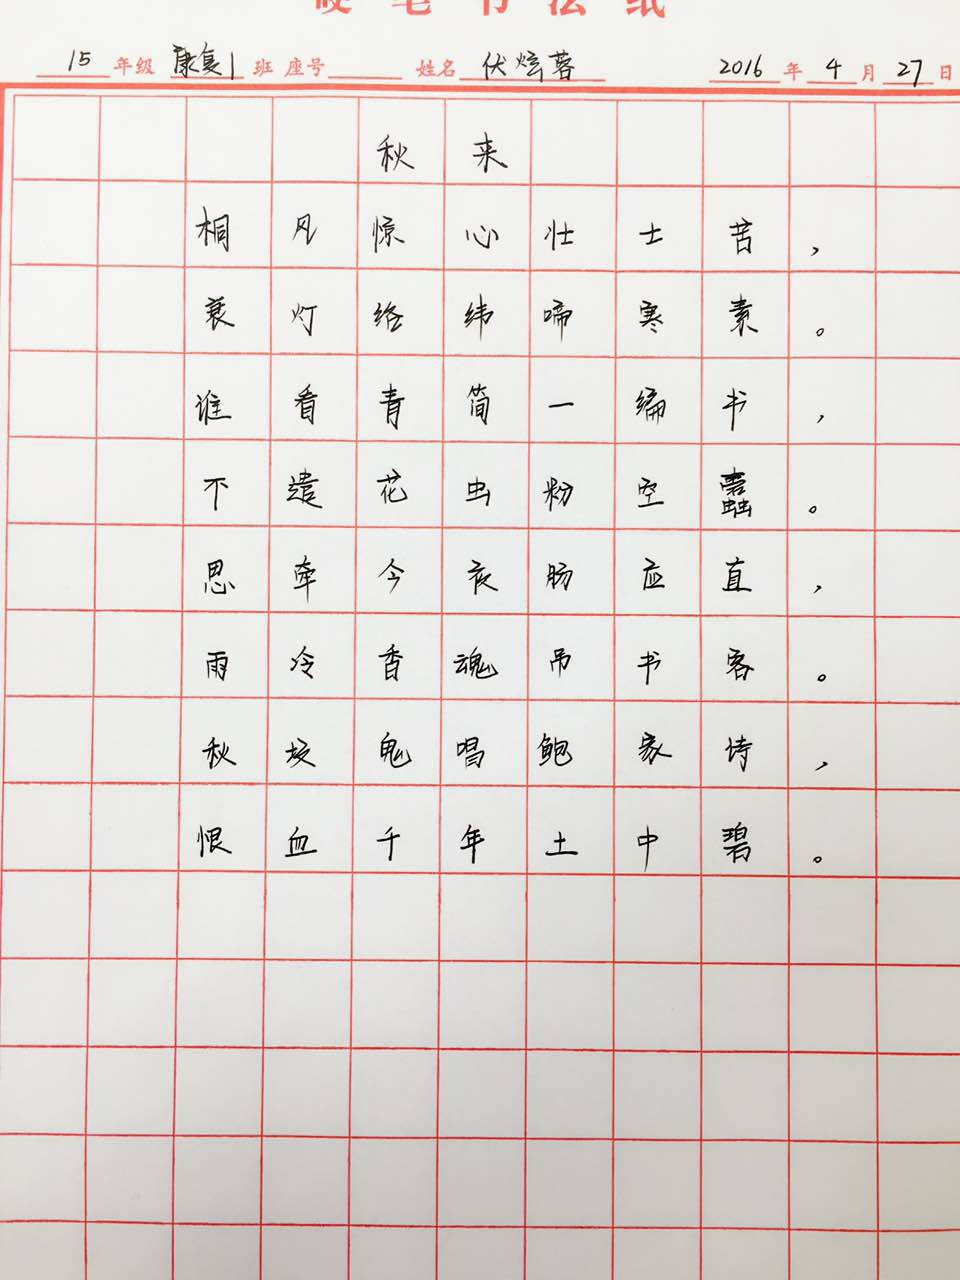 硬笔书法纸
15年级 康复1班 座号 姓名伏炫蓉 2016年4月27日
秋来
桐风惊心壮士苦,
衰灯络纬啼寒素。
谁看青简一编书,
不遣花虫粉空蠹。
思牵今夜肠应直,
雨冷香魂吊书客。
秋坟鬼唱鲍家诗,
恨血千年土中碧。